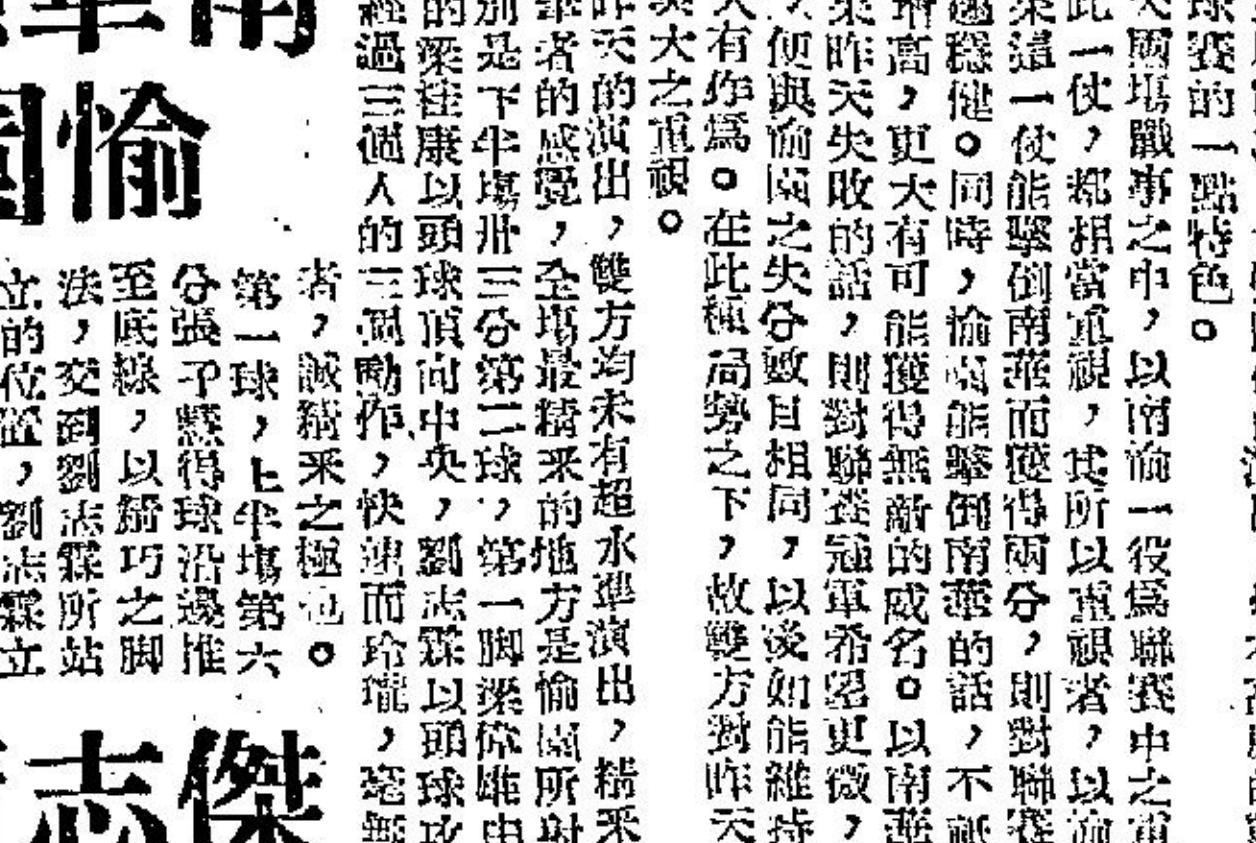 球賽的一點特色。
天兩塲戰事之中，以南愉一役爲聯賽中之重
此一仗，都相當重視，其所以重視者，以愉
果這一仗能擊倒南華而獲得兩分，則對聯賽
越穩健。同時，愉園能擊倒南華的話，不祇
增高，更大有可能獲得無敵的威名。以南華
果昨天失敗的話，則對聯賽冠軍希望更微，
便與愉園之失分數目相同，以後如能維持
大有作爲。在此種局勢之下，故雙方對昨天
與大之重視。
昨天的演出，雙方均未有超水準演出，精采
筆者的感覺，全塲最精采的地方是愉園所射
別是下半塲卅三分第二球，第一脚梁偉雄由
的梁柱康以頭球頂向中央，劉志霖以頭球攻
經過三個人的三個動作，快速而玲瓏，毫無
者，誠精采之極也。
第一球，上半塲第六
分張子慧得球沿邊推
至底線，以精巧之脚
法，交到劉志霖所站
立的位置，劉志霖立
南華
愉園
傑志